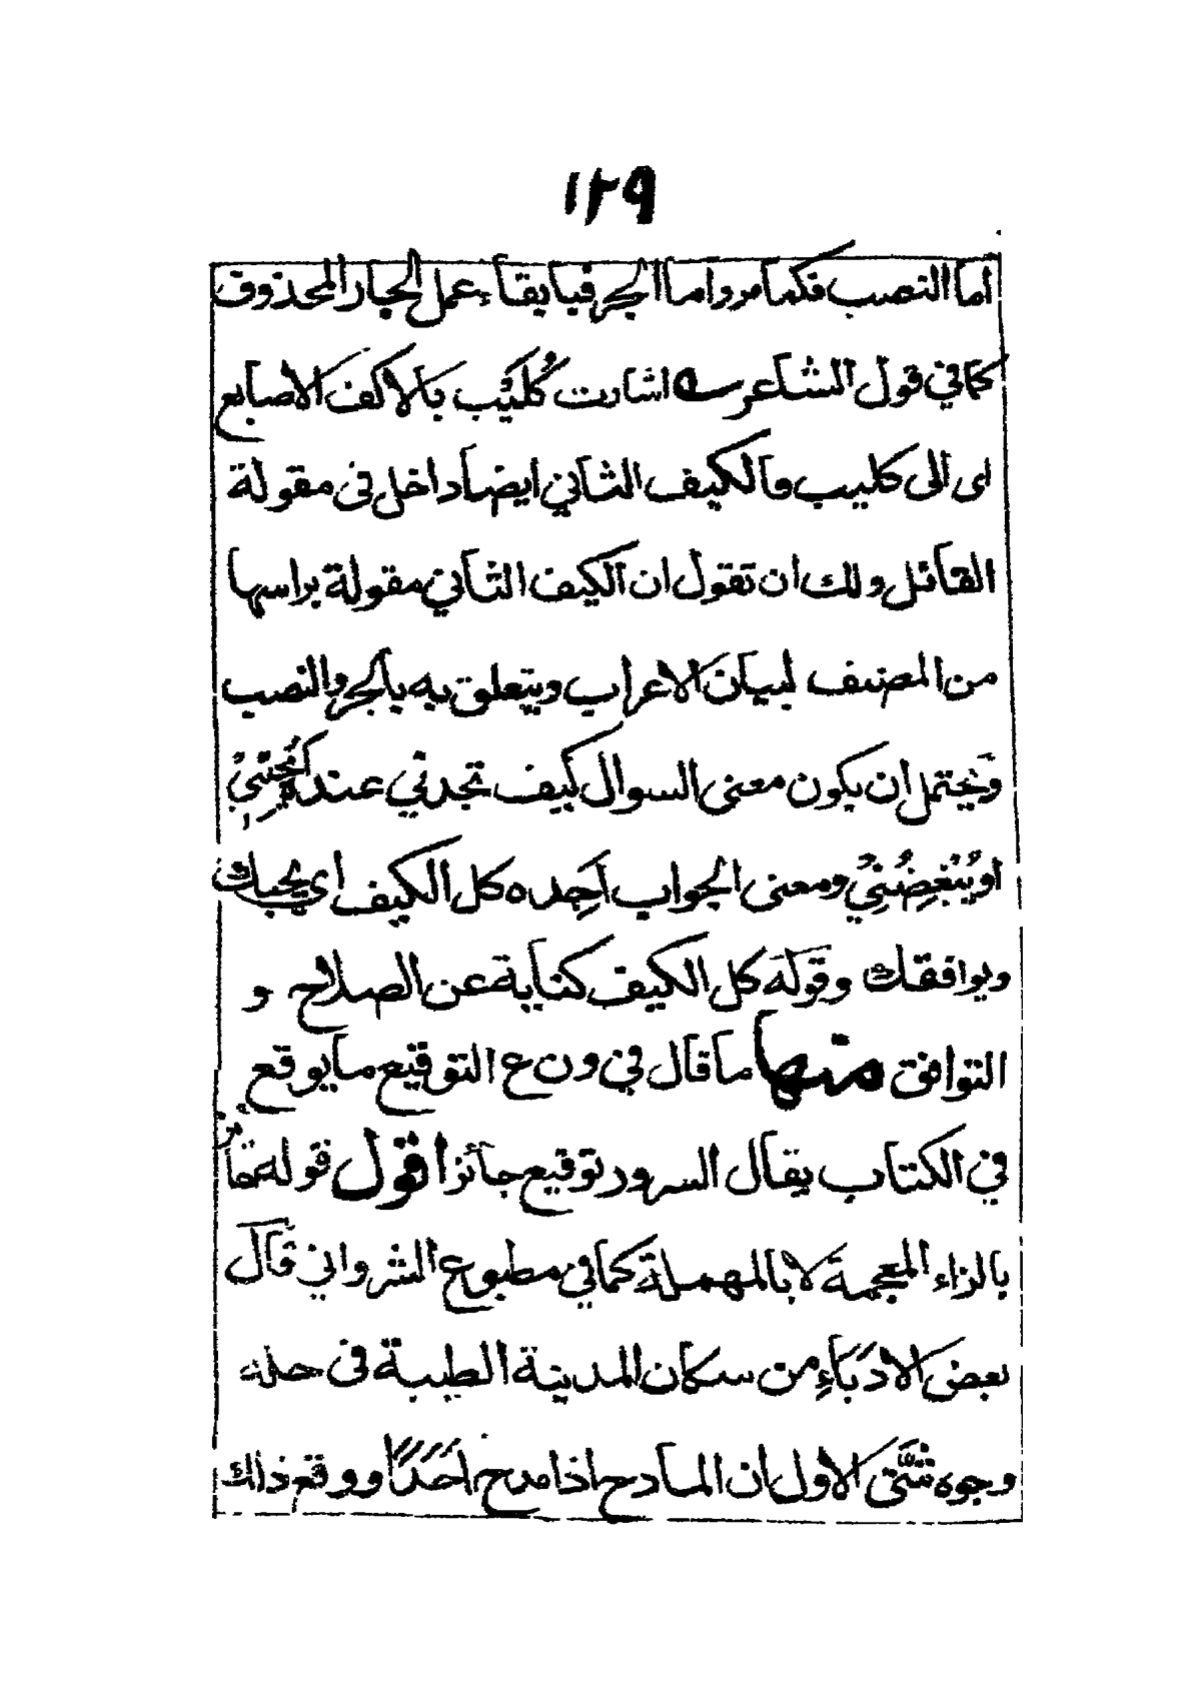 ١٢٩
أما النصب فكما مر واما الجر فبابقاء عمل الجار المحذوف
كما في قول الشاعر ؎ اشارت كُلَيْبٍ بالاكف الاصابع
اى الى كليب والكيف الثاني ايضا داخل فى مقولة
القائل ولك ان تقول ان الكيف الثاني مقولة براسها
من المصنف لبيان الاعراب ويتعلق به بالجر والنصب
وَيحتمل ان يكون معنى السوال كيف تجدني عنده أيُحِبُّنِيْ
اويُبْغِضُنِيْ ومعنى الجواب اَجِده كل الكيف اى يحبك
ويوافقك وقوله كل الكيف كناية عن الصلاح و
التوافق منها ما قال في و ن ع التوقيع ما يوقع
في الكتاب يقال السرور توقيع جآئز اقول قوله جائز
بالزاء المعجمة لا بالمهملة كما في مطبوع الشرواني قال
بعض الادباءِ من سكان المدينة الطيبة فى حله
وجوه شَتّى الاول ان المادح اذا مدح احدًا ووقع ذلك